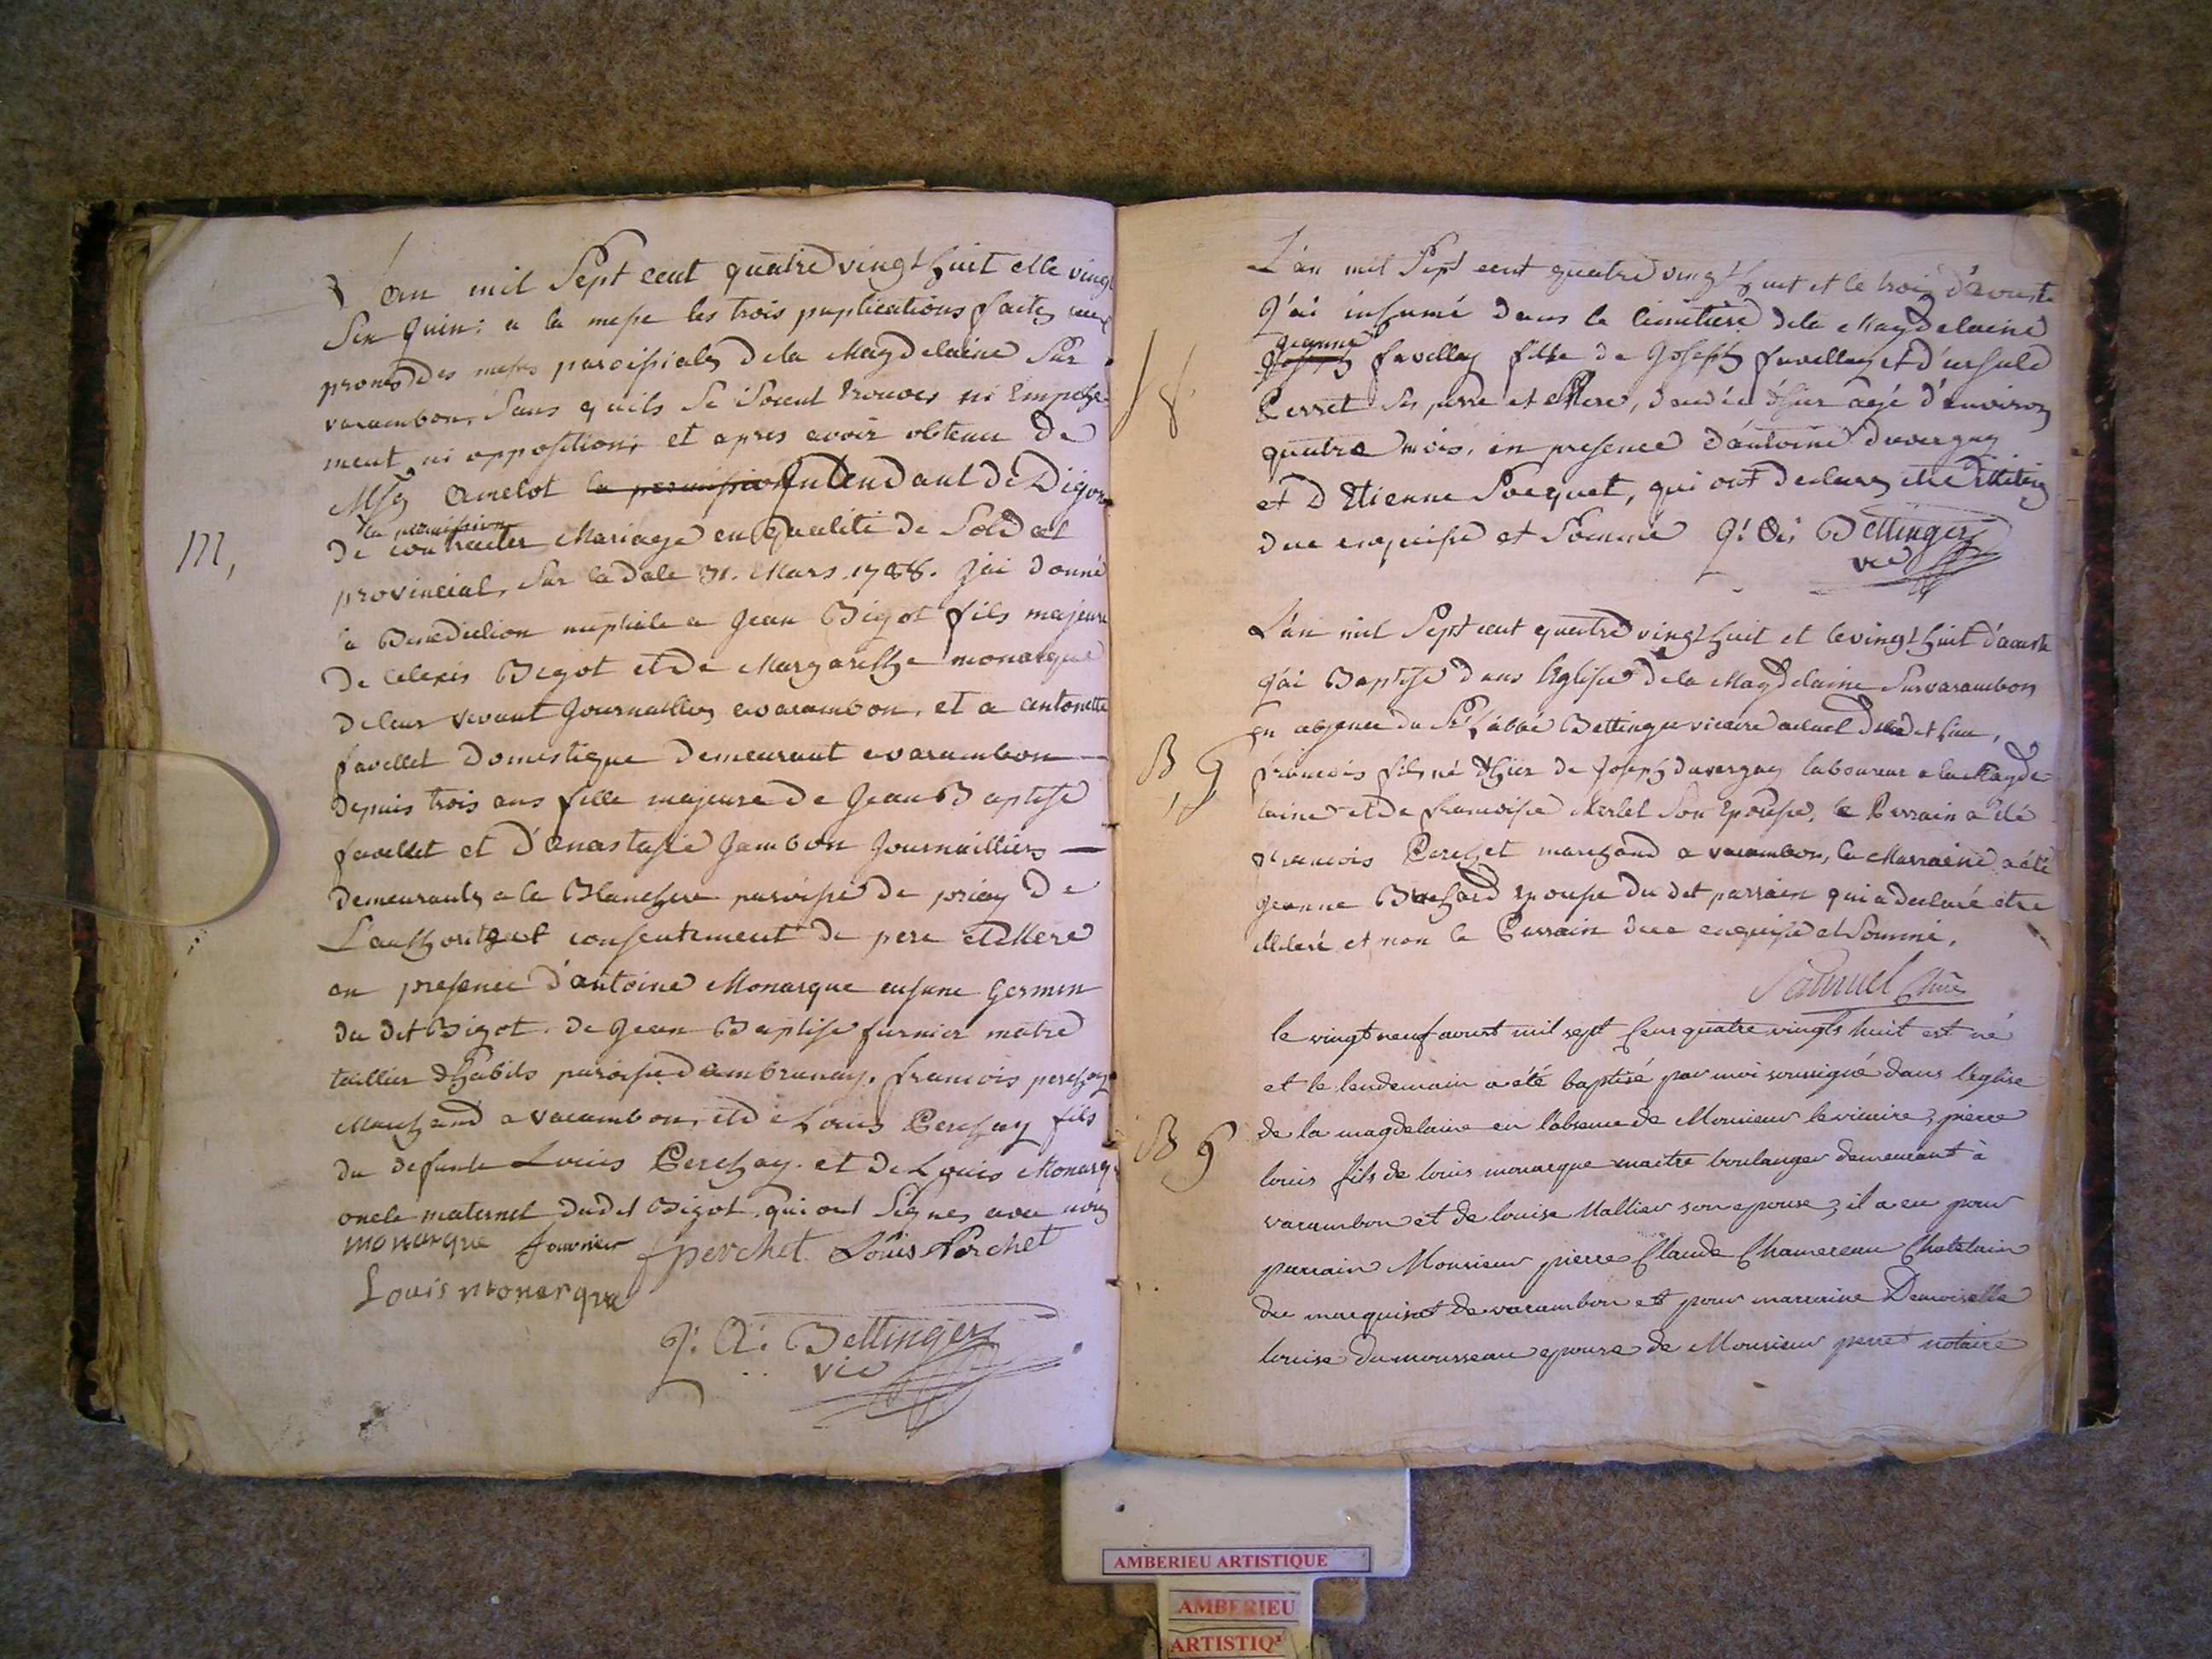 L'an mil Sept cent quatre vingt huit et le vingt
Six Juin: a la messe les trois puplications faites aux
prones des messes paroissiales de la Magdelaine Sur
varambon, Sans quils se soient trouvés ni Empeche-
ment ni opposition; et apres avoir obtenu de
Msg Amelot la permission Intendant de Dijon
la permission
de contracter Mariage en qualité de Soldat
provincial, Sur la date 31. Mars. 1788. J'ai donné
la Benediction nuptiale a Jean Bigot fils majeure
de alexis Bigot et de Margarithe monarque
de leur vivant Journallies a varambon, et a antonette
favellet domestique demeurant a varambon —
depuis trois ans fille majeure de Jean Baptiste
favellet et d'anastasie Jambon Journailliers —
demeurants a la Blanchere paroisse de priay de
L'authorité et consentement de pere et Mere
en presence d'antoine Monarque cusune Germen
du dit Bigot. de Jean Baptiste furnier maitre
taillier d'habits paroisse d'ambrunay. francois perchay
Marchand a varambon, et de Louis Perchay fils
du defunte Louis Perchay. et de Louis Monarq
oncle maternel dudit Bigot, qui ont Signes avec nous
M,
monarque fournier f perchet Louis Perchet
Louis monarque
J: A: Bettinger
vic
L'an mil Sept cent quatre vingt huit et le trois d'aouste
J'ai inhumé dans le Cimitiere de la Magdelaine
Jeanne
Joseph favelley fille de Joseph favelley et d'ursule
Perret Ses perre et Mere, decedée d'hier agé d'environ
quatre mois, en presence d'antoine duvergay
et D Etienne Socquet, qui ont declarés etre illiterés
due enquise et Sommé J: A: Bettinger
vic
L'an mil Sept cent quatre vingt huit et le vingt huit d'aouste
J'ai Baptisé dans leglise de la Magdelaine Sur varambon
en absence du Sr l'abbé Bettinger vicaire actuel dudit lieu,
B G
francois fils né d'hier de Joseph duvergay laboureur a la Magde-
laine et de francoise Merlet Son Epouse, le Parrain a été
francois Perchet marchand a varambon, la Marraine a été
Jeanne Brochard epouse du dit parrain qui a declaré etre
illiteré et non le Parrain due enquise et Sommé.
Curé
le vingt neuf aoust mil sept Cens quatre vingts huit est né
et le lendemain a été baptisé par moi soussigné dans l'eglise
B G
de la magdelaine en l'absence de Monsieur le vicaire, pierre
louis fils de louis monarque maitre boulanger demeurant à
varambon et de louise Mallier son epouse, il a eu pour
parrain Monsieur pierre Claude Chamereau Chatelain
du marquisat de varambon et pour marraine Demoiselle
louise dumousseau epouse de Monsieur perret notaire
AMBERIEU ARTISTIQUE
AMBERIEU
ARTISTIQ